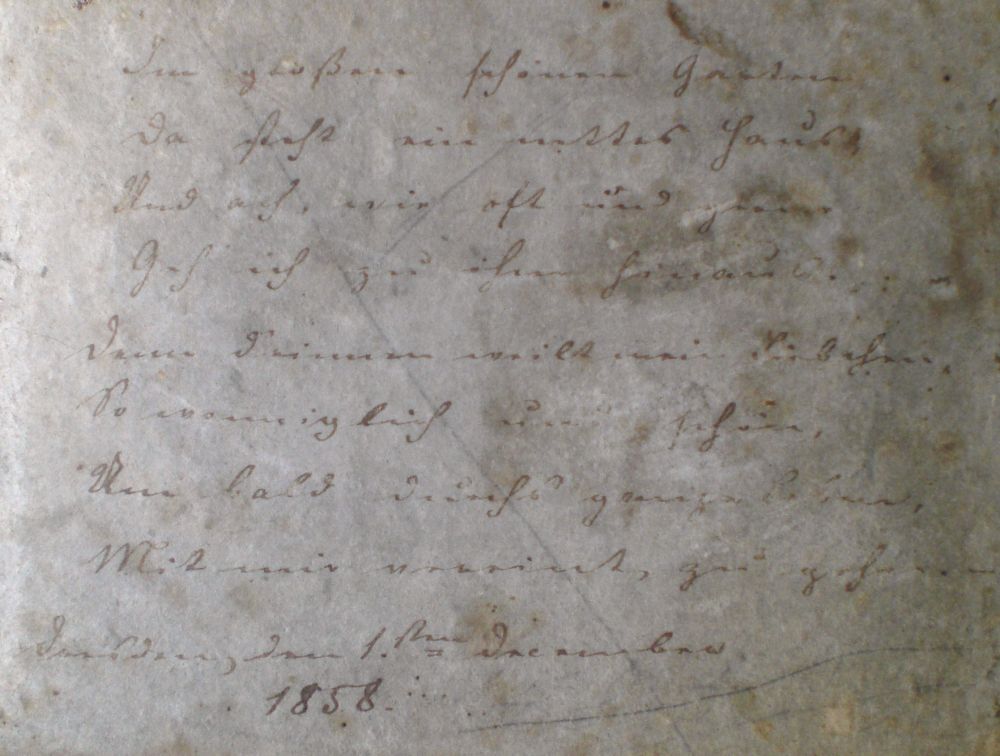 Im großen schönen Garten
Da steht ein nettes Haus,
Und ach, wie oft und gerne
Geh ich zu ihm hinaus.
Denn drinnen weilt mein Liebchen,
So wonniglich und schön,
Um bald durchs ganze Leben,
Mit mir vereint, zu gehen
Dresden, den 1. sten December
1858.